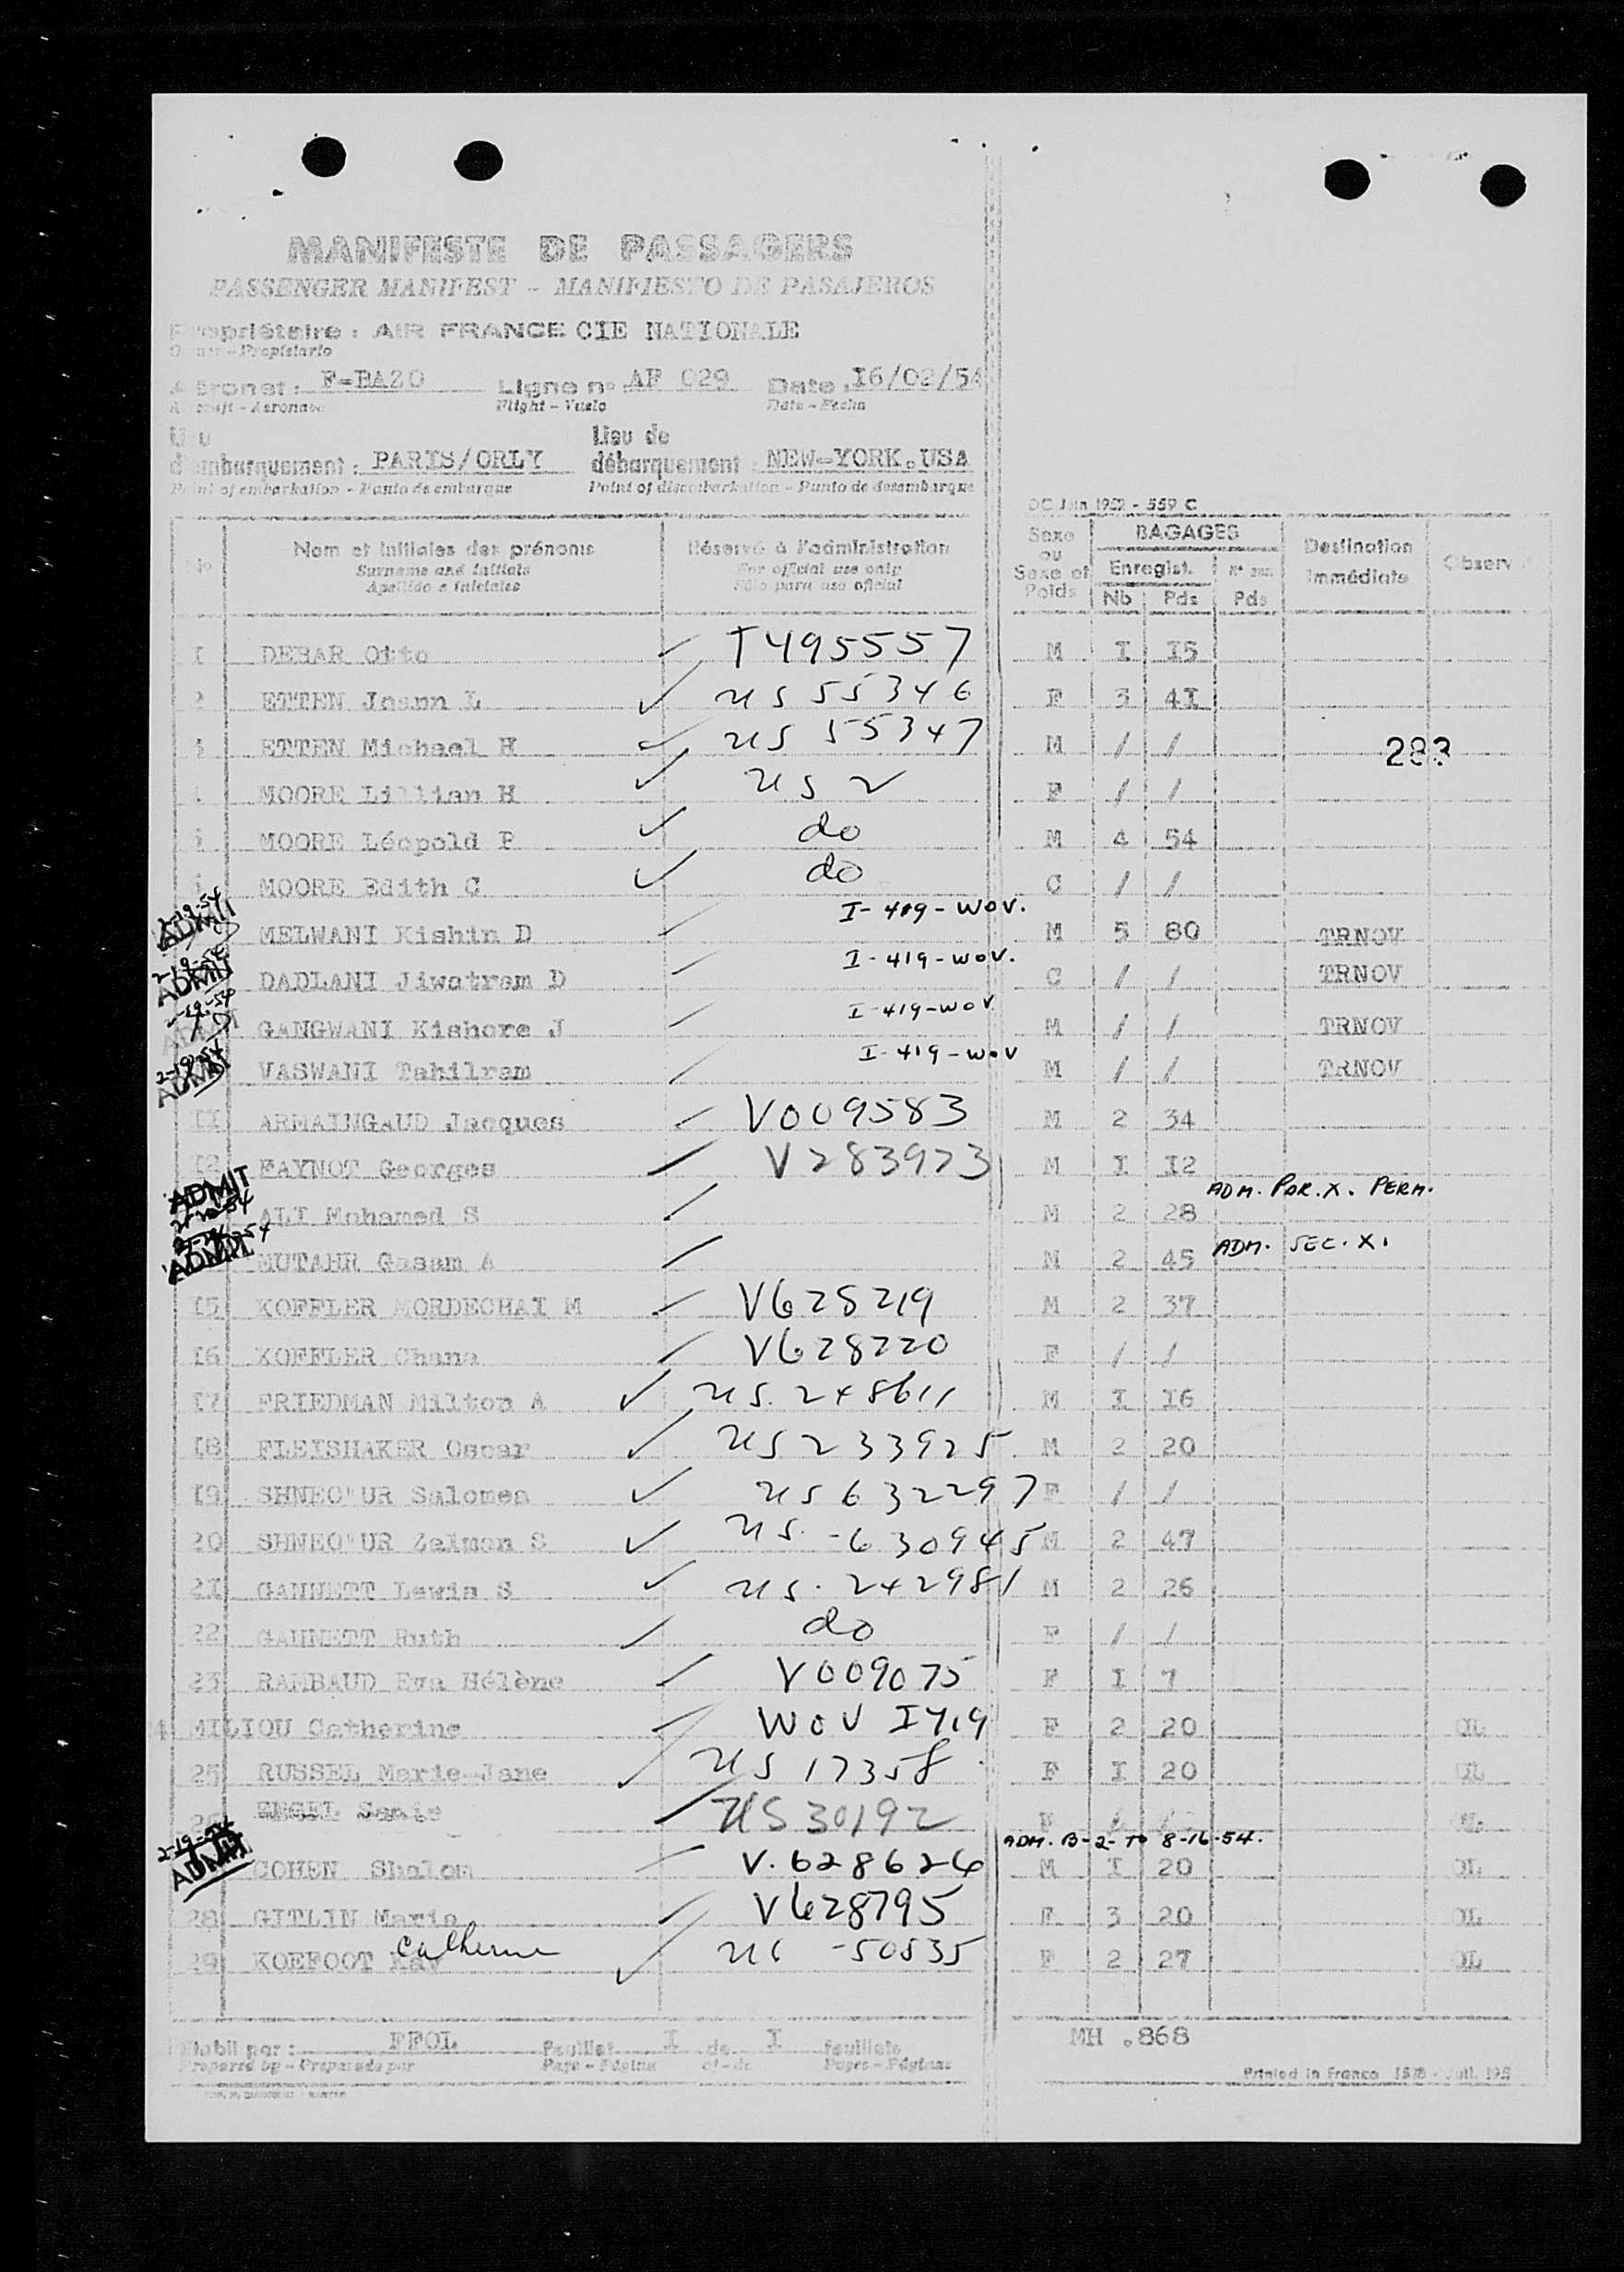 MANIFESTE DE PASSAGERS
PASSENGER MANIFEST - MANIFIESTO DE PASAJEROS
Propriétaire : AIR FRANCE CIE NATIONALE
Owner - Propietario
Aéronef : F-BAZO Ligne n° AF 029 Date : I6/02/54
Aircraft - Aeronave Flight - Vuelo Date - Fecha
Lieu Lieu de
d'embarquement : PARIS/ORLY débarquement : NEW-YORK.USA
Point of embarkation - Punto de embarque Point of disembarkation - Punto de desembarque
OC Juin 1952 - 559 C
N° Nom et initiales des prénoms Réservé à l'administration Sexe ou Sexe et Poids BAGAGES Destination immédiate Observ
Surname and initials For official use only Enregist.
Apellido e iniciales Sólo para uso oficial Nb Pds Pds
I DEBAR Otto T495557 M I I5
2 ETTEN Joann L US 55346 F 3 4I
3 ETTEN Michael H US 55347 M / / 283
MOORE Lillian H US F / /
MOORE Léopold P do M 4 54
MOORE Edith C do C / /
2-19-54 ADMIT MELWANI Kishin D I-419-WOV. M 5 80 TRNOV
2-19-54 ADMIT DADLANI Jiwatram D I-419-WOV. C / / TRNOV
2-19-54 ADMIT GANGWANI Kishore J I-419-WOV M / / TRNOV
2-19-54 ADMIT VASWANI Tahilram I-419-WOV M / / TRNOV
II ARMAINGAUD Jacques V009583 M 2 34
I2 FAYNOT Georges V283923 M I I2
ADMIT ALI Mohamed S M 2 28 ADM. PAR. X. PERM.
ADMIT MUTAHR Gasam A M 2 45 ADM. SEC. X.
I5 KOFFLER MORDECHAI M V628219 M 2 37
I6 KOFFLER Chana V628220 F / /
I7 FRIEDMAN Milton A US. 248611 M I I6
I8 FLEISHAKER Oscar US233925 M 2 20
I9 SHNEO"UR Salomea US 632297 F / /
20 SHNEO"UR Zalman S US. -630945 M 2 47
2I GANNETT Lewis S US. 242981 M 2 26
22 GANNETT Ruth do F / /
23 RAMBAUD Eva Hélène V009075 F I 7
MILIOU Catherine WOV I419 F 2 20 OL
25 RUSSEL Marie-Jane US 17358 F I 20 OL
26 ENGEL US 30192 F OL
2-19-54 ADMIT COHEN Shalom V. 628626 M I 20 OL
ADM. B-2- TO 8-16-54.
28 GITLIN Maria V628795 F 3 20 OL
29 KOEFOOT Kay Catherine US -50535 F 2 27 OL
Etabli par : FFOL Feuillet I de I feuillets MH .868
Prepared by - Preparado por Page - Página of - de Pages - Páginas
Printed in France